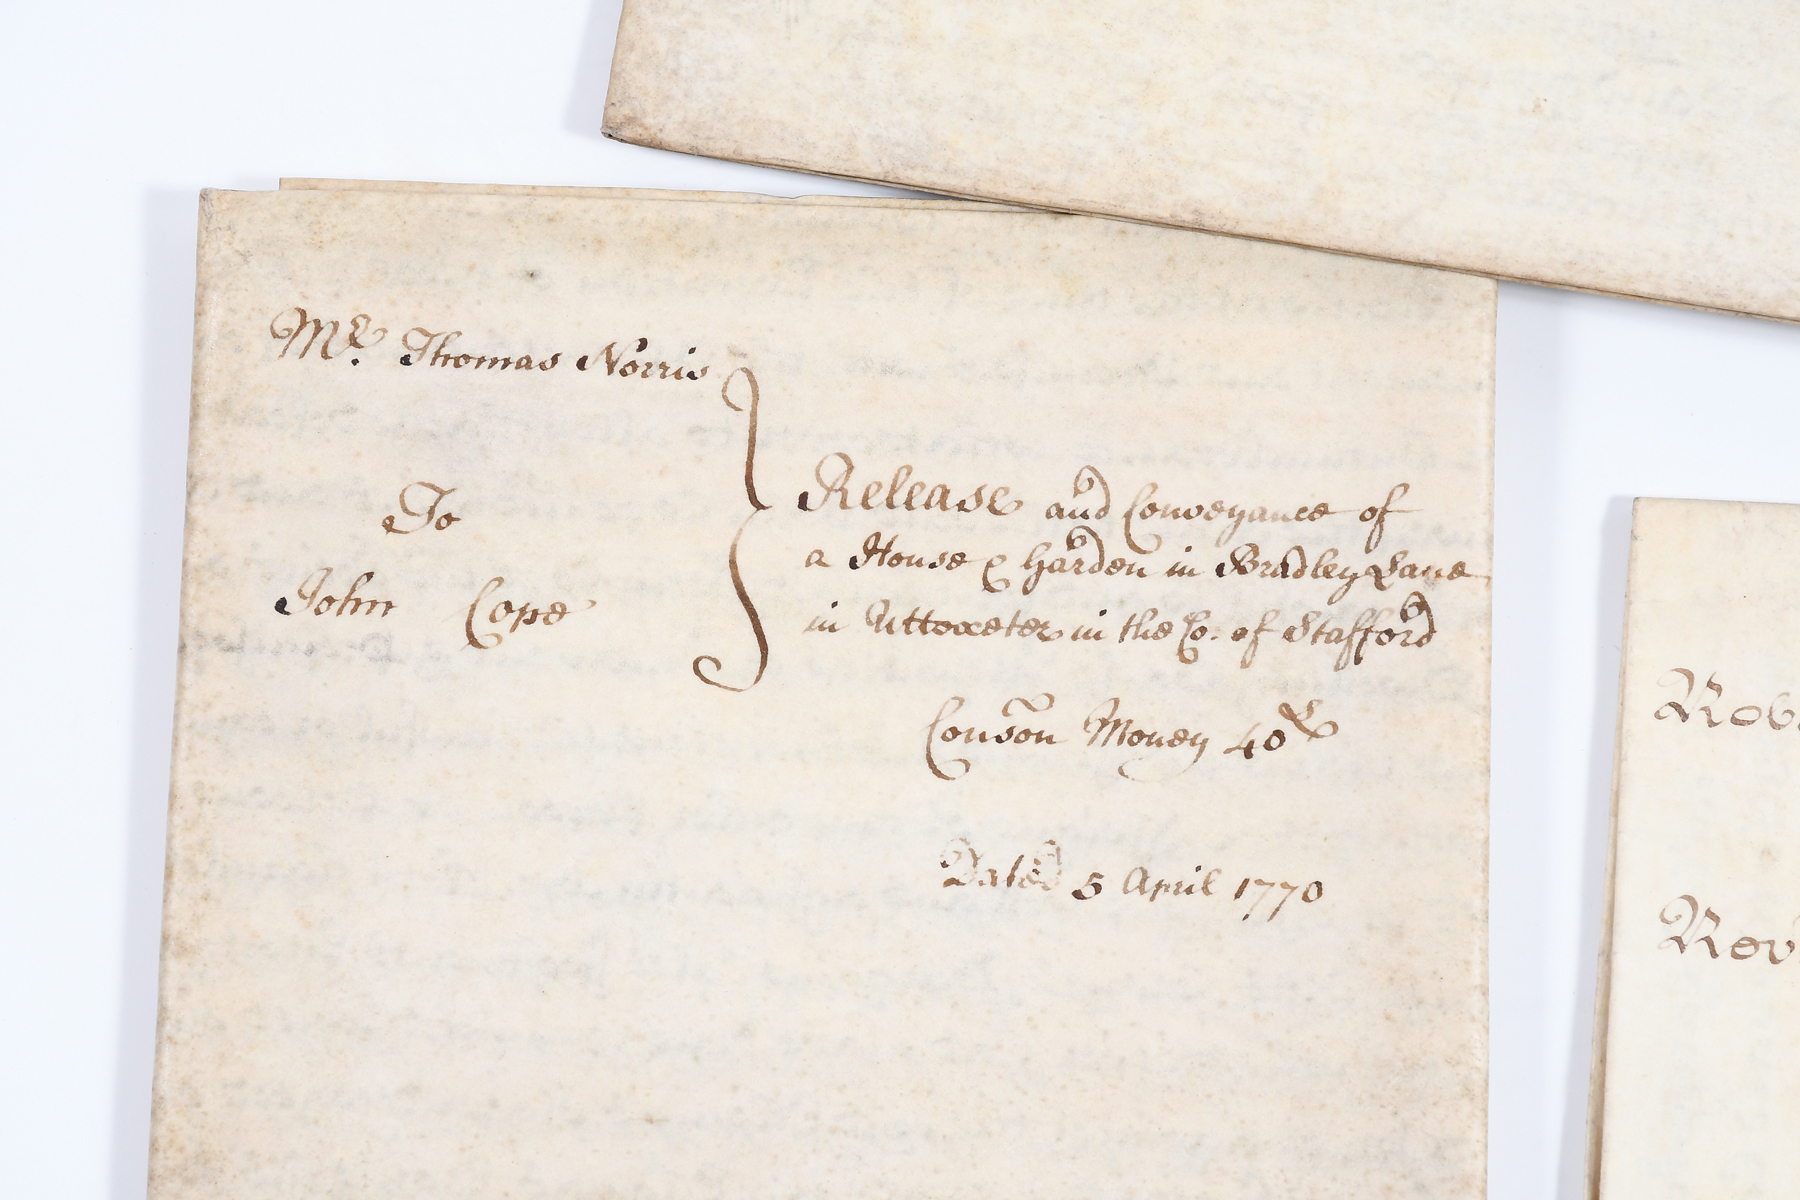 Mr. Thomas Norris
To
John Cope
Release and Conveyance of
a House & Garden in Bradley Lane
in Uttoxeter in the Co: of Stafford
Conson Money 40£
Dated 5 April 1770